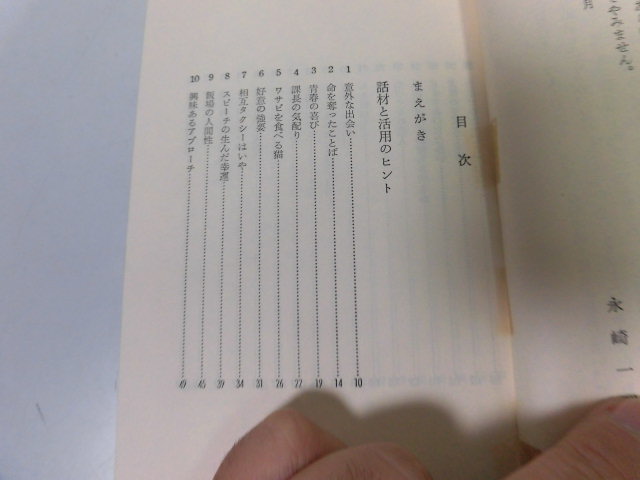 月
やみません。
永崎一
目次
まえがき
話材と活用のヒント
1 意外な出会い 10
2 命を奪ったことば 14
3 青春の喜び 19
4 課長の気配り 22
5 ワサビを食べる猫 26
6 好意の強要 31
7 相互タクシーはいや 34
8 スピーチの生んだ幸運 39
9 飯場の人間性 45
10 興味あるアプローチ 49